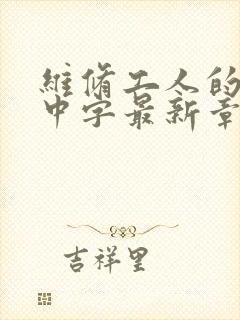 維脩工人的
中字最新章
吉祥里